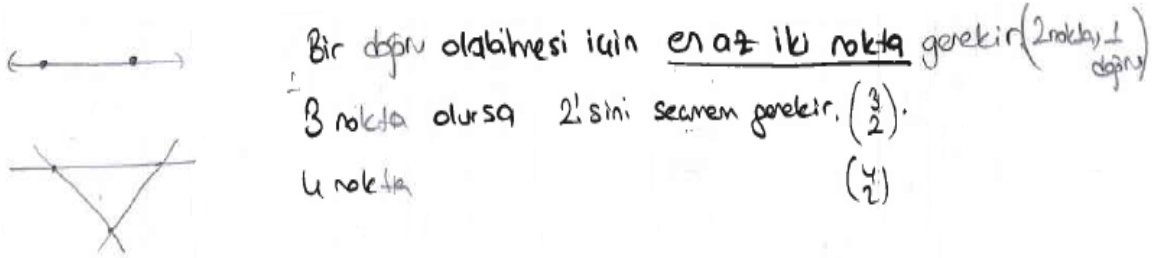 Bir doğru olabilmesi için en az iki nokta gerekir (2 nokta, 1 doğru)
3 nokta olursa 2'sini seçmem gerekir. (3 2).
4 nokta (4 2)